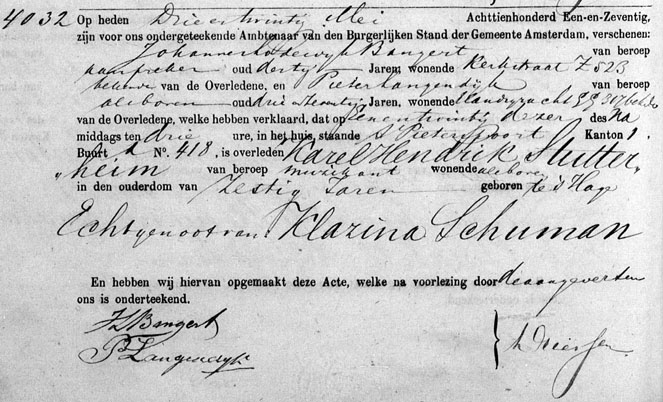 4032 Op heden Drieentwintig Mei Achttienhonderd Een-en-Zeventig,
zijn voor ons ondergeteekende Ambtenaar van den Burgerlijken Stand der Gemeente Amsterdam, verschenen:
Johannes Lodewijk Bangert van beroep
aanspreker oud dertig Jaren, wonende Kerkstraat Z 523
bekende van de Overledene, en Pieter Langendijk
alsboven oud drie Jaren, wonende
van de Overledene, welke hebben verklaard, dat op eenentwintig dezer des Na
middags ten drie ure, in het huis, staande St Pieterspoort Kanton 1,
Buurt A No. 418, is overleden Karel Hendrik Stutter„
„heim van beroep muzikant wonende alsboven
in den ouderdom van Zestig Jaren geboren te 's Hage
Echtgenoot van: Klazina Schuman
En hebben wij hiervan opgemaakt deze Acte, welke na voorlezing door de aangevers en
ons is onderteekend.
JL Bangert
P. Langendijk